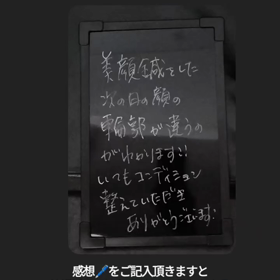 美顔鍼をした
次の日の顔の
輪郭が違うの
がわかります!!
いつもコンディション
整えていただき
ありがとうございます.
感想🖊をご記入頂きますと